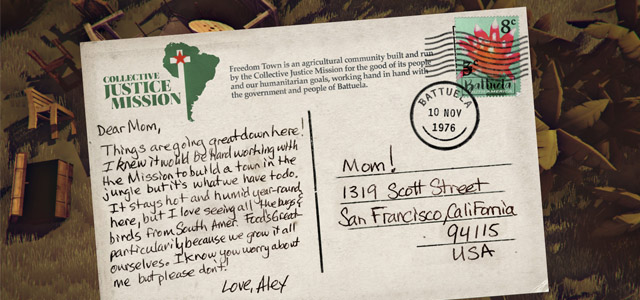 COLLECTIVE
JUSTICE
MISSION
Freedom Town is an agricultural community built and run
by the Collective Justice Mission for the good of its people
and our humanitarian goals, working hand in hand with
the government and people of Battuela.
8c
Battuela
BATTUELA
10 NOV
1976
Dear Mom,
Things are going great down here!
I knew it would be hard working with
the Mission to build a town in the
jungle but it's what we have to do.
It stays hot and humid year-round
here, but I love seeing all the bugs &
birds from South Amer. Food's Great
particularly because we grow it all
ourselves. I know you worry about
me but please don't.
Love, Alex
Mom!
1319 Scott Street
San Francisco, California
94115
USA